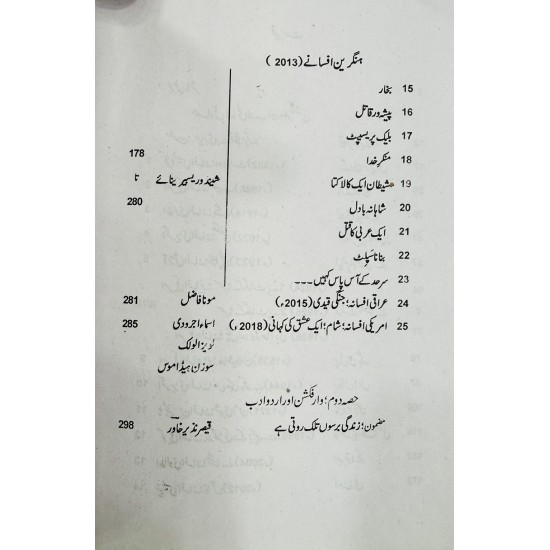 ہنگرین افسانے (2013)
15 بخار
16 پیشہ ور قاتل
17 بلیک پریسیپٹ
18 منکرِ خدا 178
19 شیطان ایک کالا کتا تا
20 شاہانہ بادل 280
21 ایک عربی کا قتل
22 بنانا سپلٹ
23 سرحد کے آس پاس کہیں ۔۔۔
24 عراقی افسانہ؛ جنگی قیدی (2015ء) مونا فاضل 281
25 امریکی افسانہ؛ شام؛ ایک عشق کی کہانی (2018ء) اسماء اجرودی 285
لویز الولک
سوزن ہیڈاموس
حصہ دوم؛ وار فکشن اور اردو ادب
مضمون؛ زندگی برسوں تلک روتی ہے قیصر نذیر خاور 298